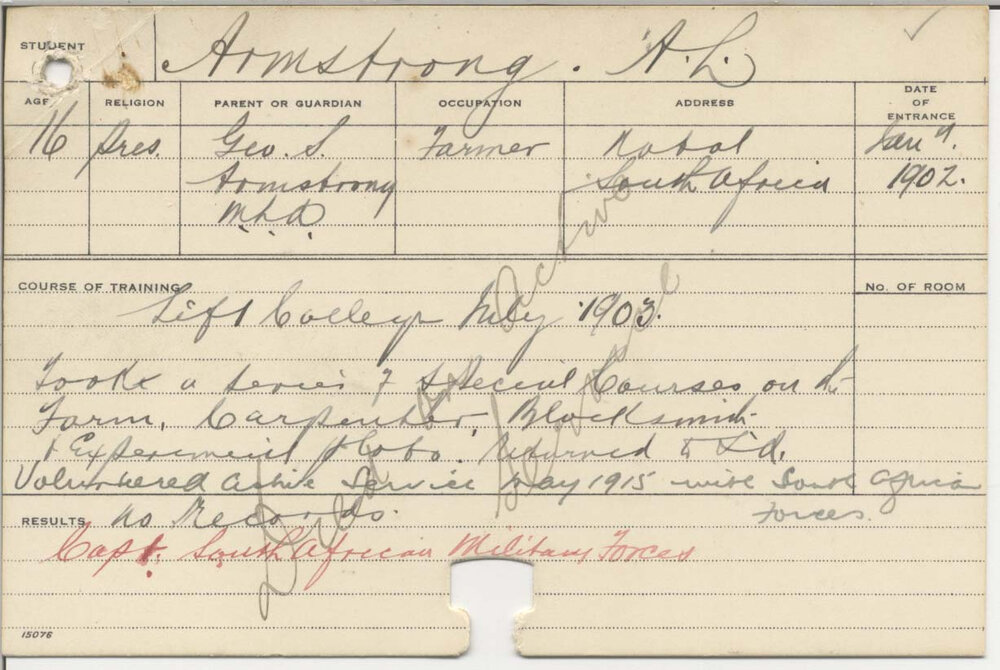 STUDENT Armstrong. A.L.
AGE RELIGION PARENT OR GUARDIAN OCCUPATION ADDRESS DATE OF ENTRANCE
16 Pres. Geo. S. Farmer Natal Jan 7.
Armstrong South Africa 1902.
M.L.A.
COURSE OF TRAINING No. OF ROOM
Left College July 1903.
Tooke a series of Special Courses on the
Farm, Carpenter, Blacksmith
& Experiment Plots. Returned to
Volunteered Active Service May 1915 with South African
Forces.
RESULTS No Records.
Capt. South African Military Forces
Died on Active
Service
15076